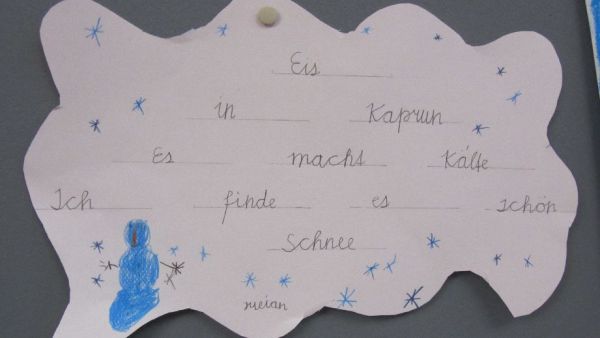 Eis
in Kaprun
Es macht Kälte
Ich finde es schön
Schnee